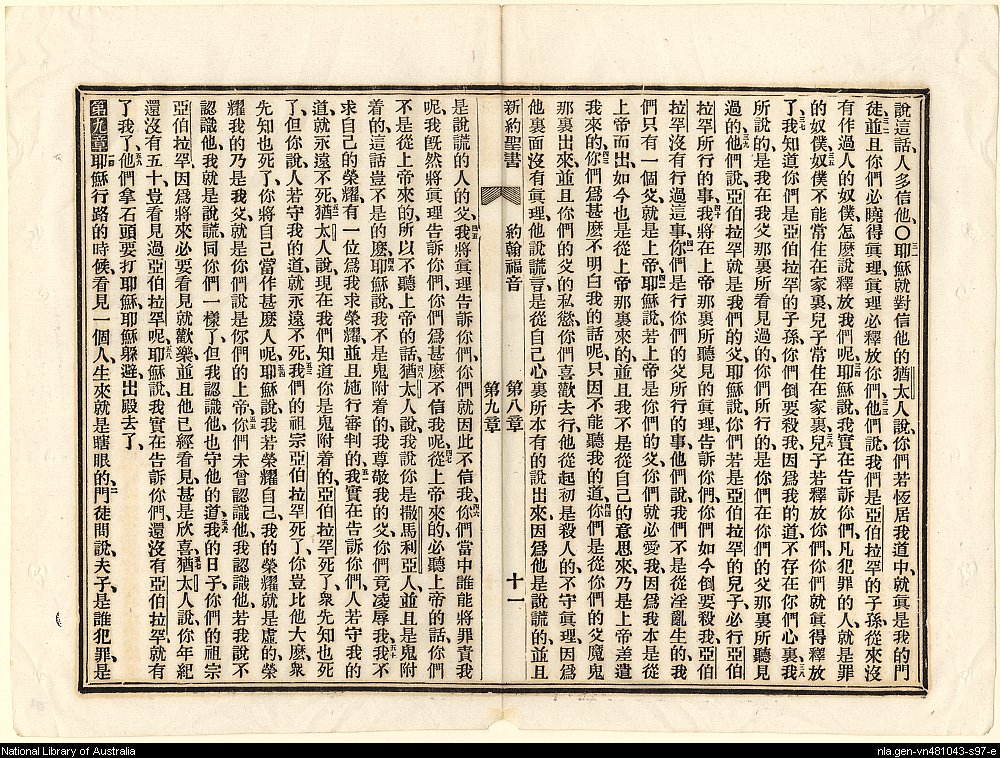 說這話、人多信他、〇三一耶穌就對信他的猶太人說、你們若恆居我道中、就眞是我的門
徒、三二並且你們必曉得眞理、眞理必釋放你們、三三他們說、我們是亞伯拉罕的子孫、從來沒
有作過人的奴僕、怎麽說釋放我們呢、三四耶穌說、我實在告訴你們、凡犯罪的人、就是罪
的奴僕、三五奴僕不能常住在家裏、兒子常住在家裏、三六兒子若釋放你們、你們就眞得釋放
了、三七我知道你們是亞伯拉罕的子孫、你們倒要殺我、因爲我的道、不存在你們心裏、三八我
所說的、是我在我父那裏所看見過的、你們所行的、是你們在你們的父那裏所聽見
過的、三九他們說、亞伯拉罕就是我們的父、耶穌說、你們若是亞伯拉罕的兒子、必行亞伯
拉罕所行的事、四十我將在上帝那裏所聽見的眞理、告訴你們、你們如今倒要殺我、亞伯
拉罕沒有行過這事、四一你們是行你們的父所行的事、他們說、我們不是從淫亂生的、我
們只有一個父、就是上帝、四二耶穌說、若上帝是你們的父、你們就必愛我、因爲我本是從
上帝而出、如今也是從上帝那裏來的、並且我不是從自己的意思來、乃是上帝差遣
我來的、四三你們爲甚麽不明白我的話呢、只因不能聽我的道、四四你們是從你們的父魔鬼
那裏出來、並且你們的父的私慾、你們喜歡去行、他從起初是殺人的、不守眞理、因爲
他裏面沒有眞理、他說謊言、是從自己心裏所本有的說出來、因爲他是說謊的、並且
新約聖書 約翰福音 第八章 十一
第九章
是說謊的人的父、四五我將眞理告訴你們、你們就因此不信我、四六你們當中誰能將罪責我
呢、我旣然將眞理告訴你們、你們爲甚麽不信我呢、四七從上帝來的、必聽上帝的話、你們
不是從上帝來的、所以不聽上帝的話、四八猶太人說、我說你是撒馬利亞人、並且是鬼附
着的、這話豈不是的麽、四九耶穌說、我不是鬼附着的、我尊敬我的父、你們竟凌辱我、五十我不
求自己的榮耀、有一位爲我求榮耀、並且施行審判的、五一我實在告訴你們、人若守我的
道、就永遠不死、五二猶太人說、現在我們知道你是鬼附着的、亞伯拉罕死了、衆先知也死
了、但你說、人若守我的道、就永遠不死、五三我們的祖宗亞伯拉罕死了、你豈比他大麽、衆
先知也死了、你將自己當作甚麽人呢、五四耶穌說、我若榮耀自己、我的榮耀就是虛的、榮
耀我的、乃是我父、就是你們說是你們的上帝、五五你們未曾認識他、我認識他、我若說不
認識他、我就是說謊、同你們一樣了、但我認識他、也守他的道、五六我的日子、你們的祖宗
亞伯拉罕、因爲將來必要看見、就歡樂、並且他已經看見、甚是欣喜、五七猶太人說、你年紀
還沒有五十、豈看見過亞伯拉罕呢、五八耶穌說、我實在告訴你們、還沒有亞伯拉罕、就有
了我了、五九他們拿石頭要打耶穌、耶穌躲避出殿去了、
第九章 一耶穌行路的時候、看見一個人、生來就是瞎眼的、二門徒問說、夫子、是誰犯罪、是
National Library of Australia
nla.gen-vn481043-s97-e